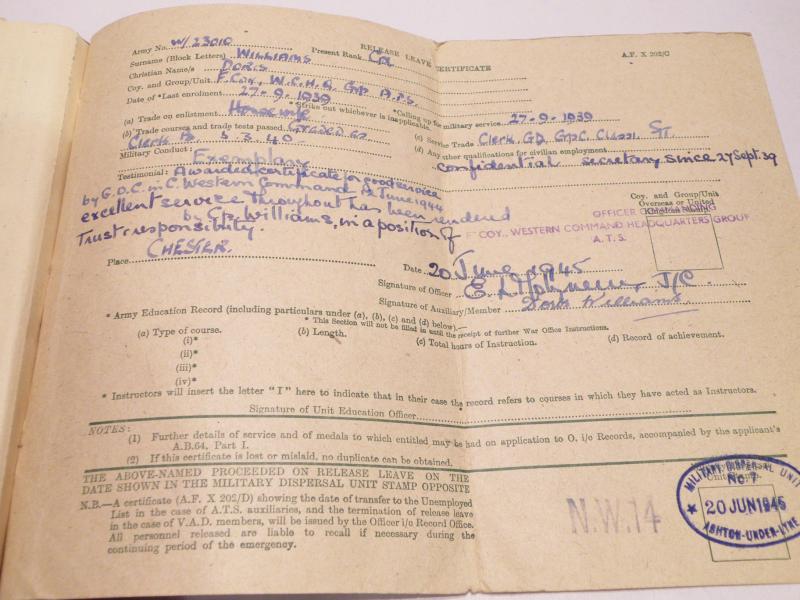 RELEASE LEAVE CERTIFICATE A.F. X 202/G
Army No. W/23010 Present Rank Cpl
Surname (Block Letters) WILLIAMS
Christian Name/s DORIS
Coy. and Group/Unit F. Coy., W.C.H.Q. Grp A.T.S.
Date of *Last enrolment 27-9-1939 *Calling up for military service 27-9-1939
*Strike out whichever is inapplicable.
(a) Trade on enlistment Housewife (c) Service Trade Clerk, GD, GpC, Class I,
(b) Trade courses and trade tests passed Graded 62 (d) Any other qualifications for civilian employment
Clerk 40 confidential secretary since 27 Sept. 39
Military Conduct: Exemplary
Testimonial: Awarded certificate for good service
by G.O.C. in C. Western Command June 1944
excellent service throughout has been rendered
by Cpl. Williams, in a position of
Trust & responsibility.
Coy, and Group/Unit
Overseas or United
OFFICER COMMANDING
F COY., WESTERN COMMAND HEADQUARTERS GROUP
A.T.S.
Place CHESTER
Date 20 June 1945
Signature of Officer J/C.
Signature of Auxiliary/Member Doris Williams
* Army Education Record (including particulars under (a), (b), (c) and (d) below).—
* This Section will not be filled in until the receipt of further War Office Instructions.
(a) Type of course. (b) Length. (c) Total hours of Instruction. (d) Record of achievement.
(i)*
(ii)*
(iii)*
(iv)*
* Instructors will insert the letter "I" here to indicate that in their case the record refers to courses in which they have acted as Instructors.
Signature of Unit Education Officer
NOTES:
(1) Further details of service and of medals to which entitled may be had on application to O. i/c Records, accompanied by the applicant's
A.B.64, Part I.
(2) If this certificate is lost or mislaid, no duplicate can be obtained.
THE ABOVE-NAMED PROCEEDED ON RELEASE LEAVE ON THE
DATE SHOWN IN THE MILITARY DISPERSAL UNIT STAMP OPPOSITE
N.B.—A certificate (A.F. X 202/D) showing the date of transfer to the Unemployed
List in the case of A.T.S. auxiliaries, and the termination of release leave
in the case of V.A.D. members, will be issued by the Officer i/c Record Office.
All personnel released are liable to recall if necessary during the
continuing period of the emergency.
N.W.14
MILITARY DISPERSAL UNIT
No. 7
20 JUN 1945
ASHTON-UNDER-LYNE